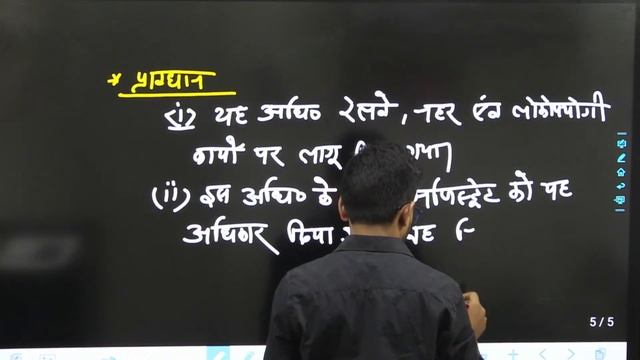 * प्रावधान
(i) यह अधि० रेलवे, नहर एंव लोकोपयोगी
कार्यों पर लागू
(ii) इस अधि० के को यह
अधिकार दिया
5/5